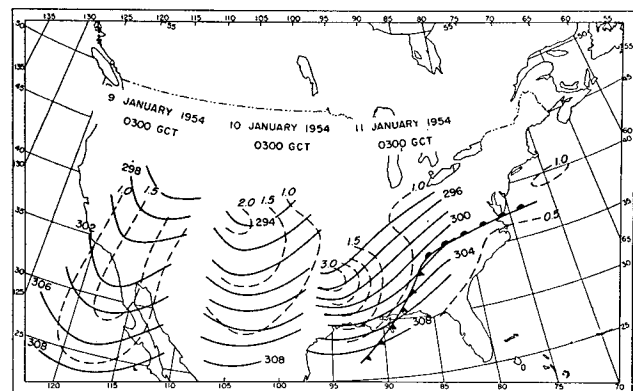 135 130 125 120 115 110 105 100 95 90 85 80 75 70 65 60 55
50
45
40
35
30
25
50
55
50
45
40
35
30
25
9 JANUARY 1954
0300 GCT
10 JANUARY 1954
0300 GCT
11 JANUARY 1954
0300 GCT
298
1.0
1.5
302
306
308
2.0
1.5
1.0
294
308
1.0
1.5
3.0
296
300
304
308
0.5
1.0
120 115 110 105 100 95 90 85 80 75